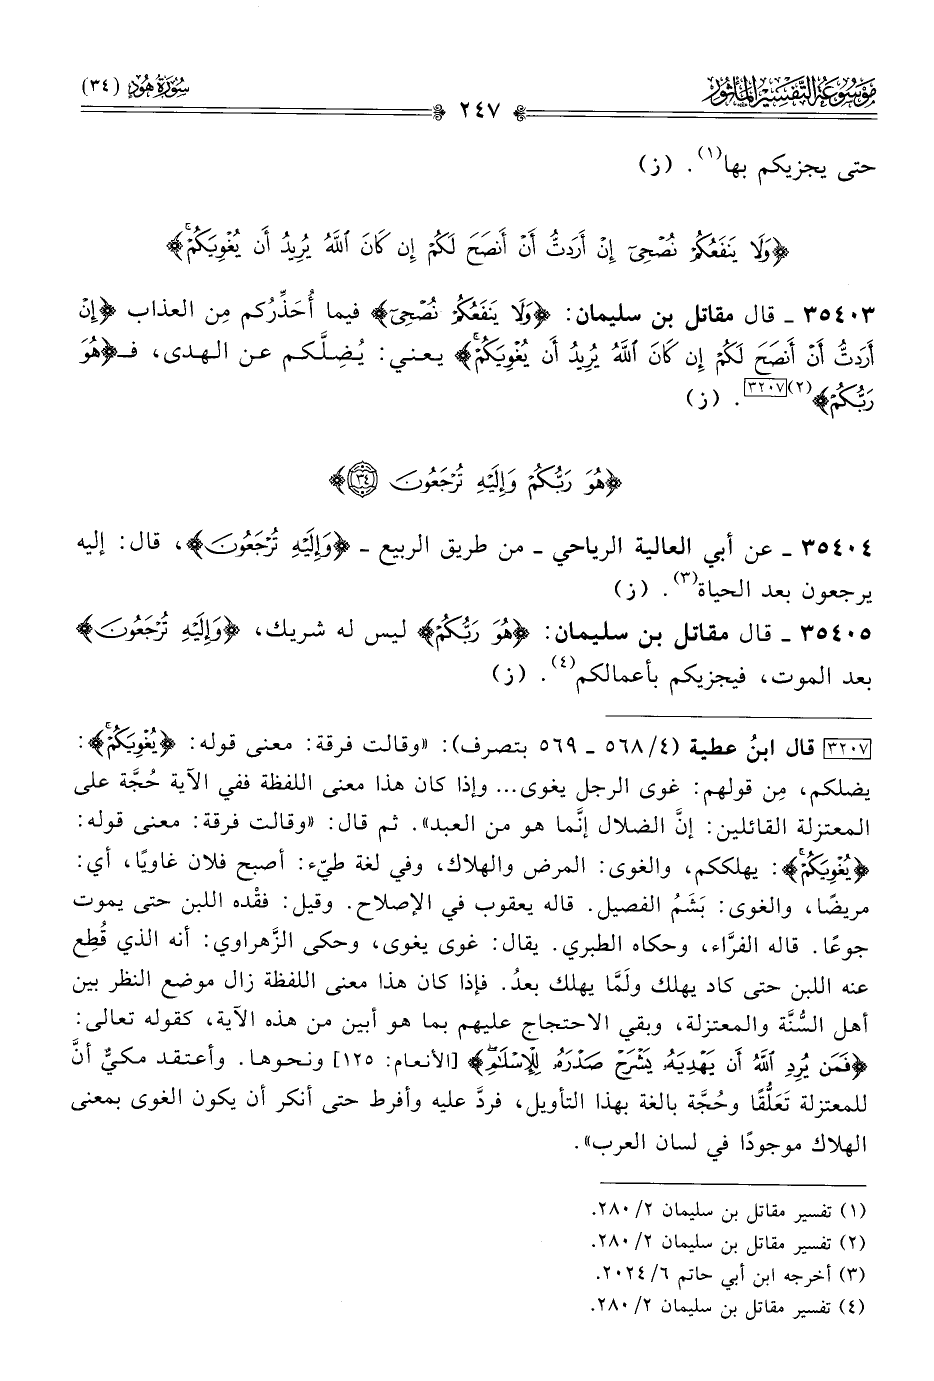 مَوْسُوعَةُ التَّفْسِيرِ المَأْثُورِ
٢٤٧
سُورَةُ هُودٍ (٣٤)
حتى يجزيكم بها(١). (ز)
﴿وَلَا يَنفَعُكُمْ نُصْحِىٓ إِنْ أَرَدتُّ أَنْ أَنصَحَ لَكُمْ إِن كَانَ ٱللَّهُ يُرِيدُ أَن يُغْوِيَكُمْۚ﴾
٣٥٤٠٣ ـ قال مقاتل بن سليمان: ﴿وَلَا يَنفَعُكُمْ نُصْحِىٓ﴾ فيما أُحَذِّركم مِن العذاب ﴿إِنْ
أَرَدتُّ أَنْ أَنصَحَ لَكُمْ إِن كَانَ ٱللَّهُ يُرِيدُ أَن يُغْوِيَكُمْۚ﴾ يعني: يُضِلَّكم عن الهدى، فـ﴿هُوَ
رَبُّكُمْ﴾(٢)[٣٢٠٧]. (ز)
﴿هُوَ رَبُّكُمْ وَإِلَيْهِ تُرْجَعُونَ ٣٤﴾
٣٥٤٠٤ ـ عن أبي العالية الرياحي ـ من طريق الربيع ـ ﴿وَإِلَيْهِ تُرْجَعُونَ﴾، قال: إليه
يرجعون بعد الحياة(٣). (ز)
٣٥٤٠٥ ـ قال مقاتل بن سليمان: ﴿هُوَ رَبُّكُمْ﴾ ليس له شريك، ﴿وَإِلَيْهِ تُرْجَعُونَ﴾
بعد الموت، فيجزيكم بأعمالكم(٤). (ز)
[٣٢٠٧] قال ابنُ عطية (٤/ ٥٦٨ ـ ٥٦٩ بتصرف): «وقالت فرقة: معنى قوله: ﴿يُغْوِيَكُمْۚ﴾:
يضلكم، مِن قولهم: غوى الرجل يغوى... وإذا كان هذا معنى اللفظة ففي الآية حُجَّة على
المعتزلة القائلين: إنَّ الضلال إنَّما هو من العبد». ثم قال: «وقالت فرقة: معنى قوله:
﴿يُغْوِيَكُمْۚ﴾: يهلككم، والغوى: المرض والهلاك، وفي لغة طيّء: أصبح فلان غاويًا، أي:
مريضًا، والغوى: بَشَمُ الفصيل. قاله يعقوب في الإصلاح. وقيل: فقْده اللبن حتى يموت
جوعًا. قاله الفرَّاء، وحكاه الطبري. يقال: غوى يغوى، وحكى الزَّهراوي: أنه الذي قُطِع
عنه اللبن حتى كاد يهلك ولَمَّا يهلك بعدُ. فإذا كان هذا معنى اللفظة زال موضع النظر بين
أهل السُّنَّة والمعتزلة، وبقي الاحتجاج عليهم بما هو أبين من هذه الآية، كقوله تعالى:
﴿فَمَن يُرِدِ ٱللَّهُ أَن يَهْدِيَهُۥ يَشْرَحْ صَدْرَهُۥ لِلْإِسْلَـٰمِۖ﴾ [الأنعام: ١٢٥] ونحوها. وأعتقد مكيٌّ أنَّ
للمعتزلة تَعَلُّقًا وحُجَّة بالغة بهذا التأويل، فردَّ عليه وأفرط حتى أنكر أن يكون الغوى بمعنى
الهلاك موجودًا في لسان العرب».
(١) تفسير مقاتل بن سليمان ٢/ ٢٨٠.
(٢) تفسير مقاتل بن سليمان ٢/ ٢٨٠.
(٣) أخرجه ابن أبي حاتم ٦/ ٢٠٢٤.
(٤) تفسير مقاتل بن سليمان ٢/ ٢٨٠.